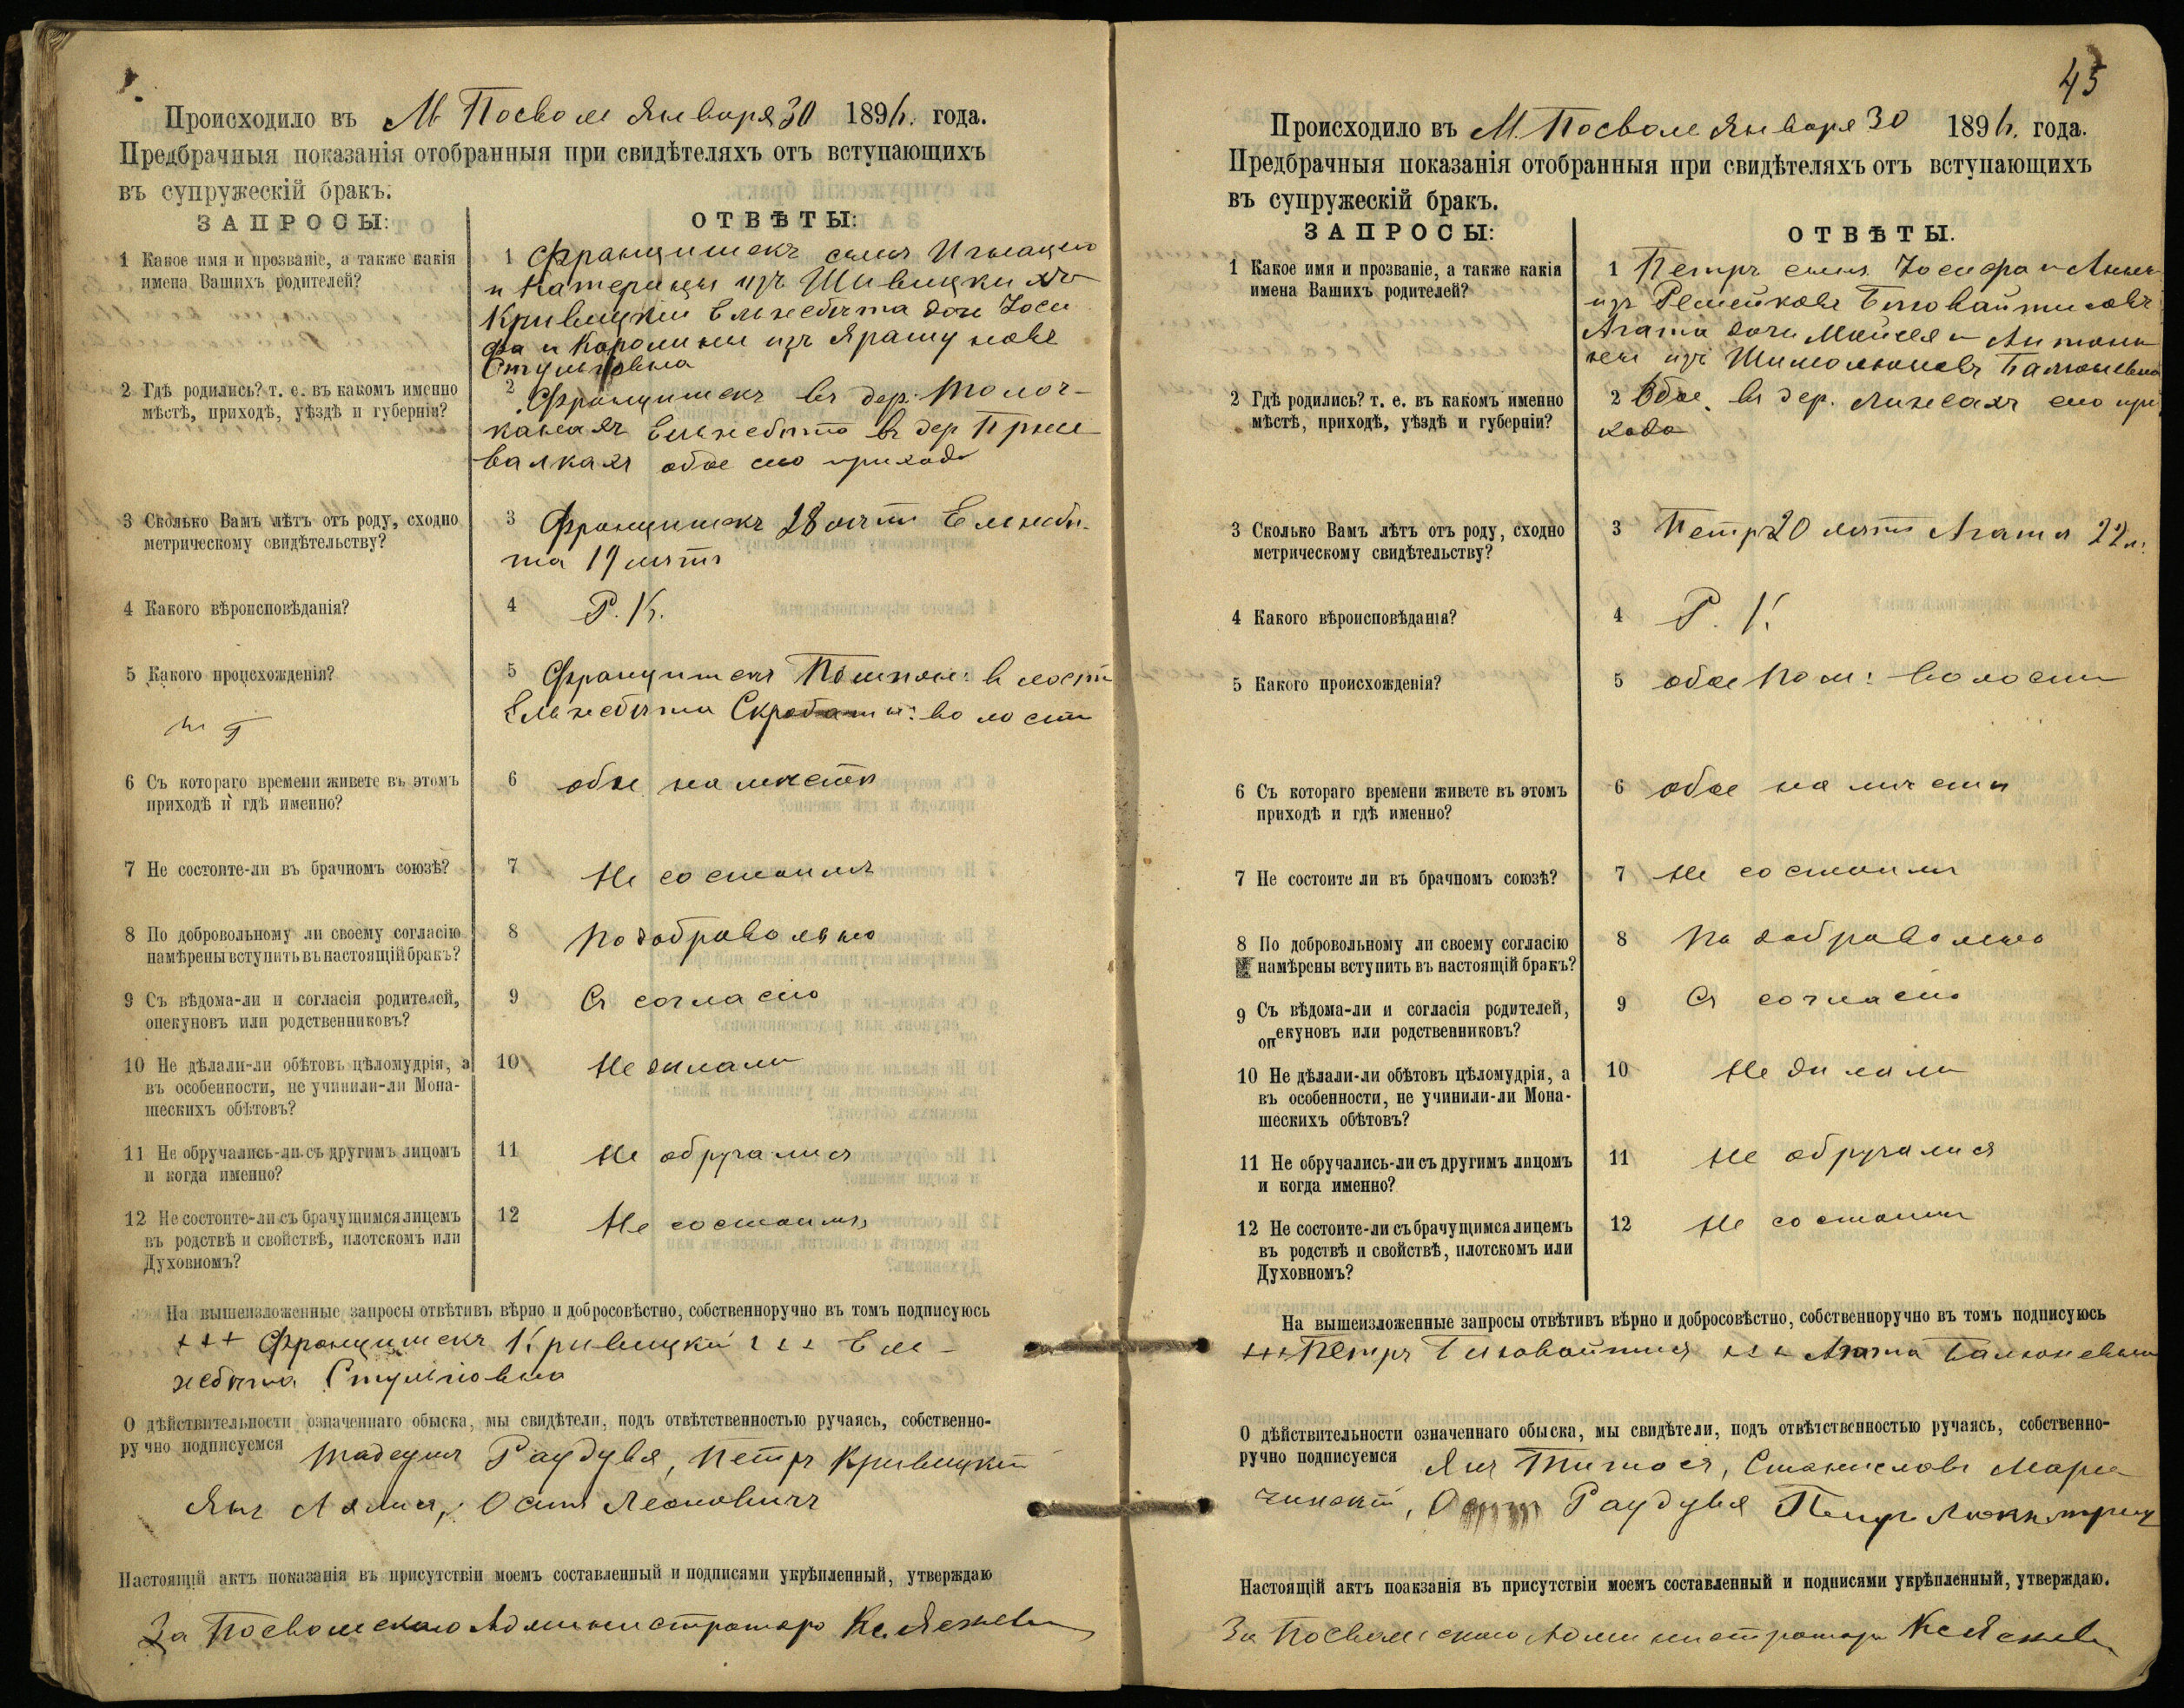 Происходило въ М Посволе Января 30 1894. года.
Предбрачныя показанія отобранныя при свидѣтеляхъ отъ вступающихъ
въ супружескій бракъ.
ЗАПРОСЫ:
ОТВѢТЫ:
1 Какое имя и прозваніе, а также какія
имена Вашихъ родителей?
1 Францишекъ сынъ Игнацего
и Катерины изъ
Кривицкій Ельжбѣта дочь Іоси
фа и Каролины изъ
2 Гдѣ родились? т. е. въ какомъ именно
мѣстѣ, приходѣ, уѣздѣ и губерніи?
2 Францишекъ въ дер.
Ельжбѣта въ дер
обое сего прихода
3 Сколько Вамъ лѣтъ отъ роду, сходно
метрическому свидѣтельству?
3 Францишекъ 28 лѣтъ Ельжбѣ-
та 19 лѣтъ
4 Какого вѣроисповѣданія?
4 Р. К.
5 Какого происхожденія?
5 Францишекъ волости
Ельжбѣта волости
6 Съ котораго времени живете въ этомъ
приходѣ и гдѣ именно?
6 обое на мѣстѣ
7 Не состоите-ли въ брачномъ союзѣ?
7 Не состоимъ
8 По добровольному ли своему согласію
намѣрены вступить въ настоящій бракъ?
8 По добровольно
9 Съ вѣдома-ли и согласія родителей,
опекуновъ или родственниковъ?
9 Съ согласію
10 Не дѣлали-ли обѣтовъ цѣломудрія, а
въ особенности, не учинили-ли Мона-
шескихъ обѣтовъ?
10 Не дѣлали
11 Не обручались-ли съ другимъ лицомъ
и когда именно?
11 Не обручалися
12 Не состоите-ли съ брачущимся лицемъ
въ родствѣ и свойствѣ, плотскомъ или
Духовномъ?
12 Не состоимъ
На вышеизложенные запросы отвѣтивъ вѣрно и добросовѣстно, собственноручно въ томъ подписуюсь
+++ Францишекъ Кривицкій +++ Ель-
жбѣта
О дѣйствительности означеннаго обыска, мы свидѣтели, подъ отвѣтственностью ручаясь, собственно-
ручно подписуемся Тадеушъ Раудувя, Петръ Кривицкій
Янъ Осипъ Леоновичъ
Настоящій актъ показанія въ присутствіи моемъ составленный и подписями укрѣпленный, утверждаю
За Посвольскаго Администратора Кс.
45
Происходило въ М. Посволе Января 30 1894. года.
Предбрачныя показанія отобранныя при свидѣтеляхъ отъ вступающихъ
въ супружескій бракъ.
ЗАПРОСЫ:
ОТВѢТЫ.
1 Какое имя и прозваніе, а также какія
имена Вашихъ родителей?
1 Петръ сынъ Іосифа и Анны
изъ
Агата дочь Мойсея и Антони
ны изъ
2 Гдѣ родились? т. е. въ какомъ именно
мѣстѣ, приходѣ, уѣздѣ и губерніи?
2 Обое въ дер. сего при
хода
3 Сколько Вамъ лѣтъ отъ роду, сходно
метрическому свидѣтельству?
3 Петръ 20 лѣтъ Агата 22 л.
4 Какого вѣроисповѣданія?
4 Р. К.
5 Какого происхожденія?
5 обое волости
6 Съ котораго времени живете въ этомъ
приходѣ и гдѣ именно?
6 обое на мѣстѣ
7 Не состоите ли въ брачномъ союзѣ?
7 Не состоимъ
8 По добровольному ли своему согласію
намѣрены вступить въ настоящій бракъ?
8 По добровольно
9 Съ вѣдома-ли и согласія родителей,
опекуновъ или родственниковъ?
9 Съ согласію
10 Не дѣлали-ли обѣтовъ цѣломудрія, а
въ особенности, не учинили-ли Мона-
шескихъ обѣтовъ?
10 Не дѣлали
11 Не обручались-ли съ другимъ лицомъ
и когда именно?
11 Не обручалися
12 Не состоите-ли съ брачущимся лицемъ
въ родствѣ и свойствѣ, плотскомъ или
Духовномъ?
12 Не состоимъ
На вышеизложенные запросы отвѣтивъ вѣрно и добросовѣстно, собственноручно въ томъ подписуюсь
+++ Петръ +++ Агата
О дѣйствительности означеннаго обыска, мы свидѣтели, подъ отвѣтственностью ручаясь, собственно-
ручно подписуемся Янъ Станиславъ Мар
чинскій, Осипъ Раудувя Петръ
Настоящій актъ поакзанія въ присутствіи моемъ составленный и подписями укрѣпленный, утверждаю.
За Посвольскаго Администратора Кс.